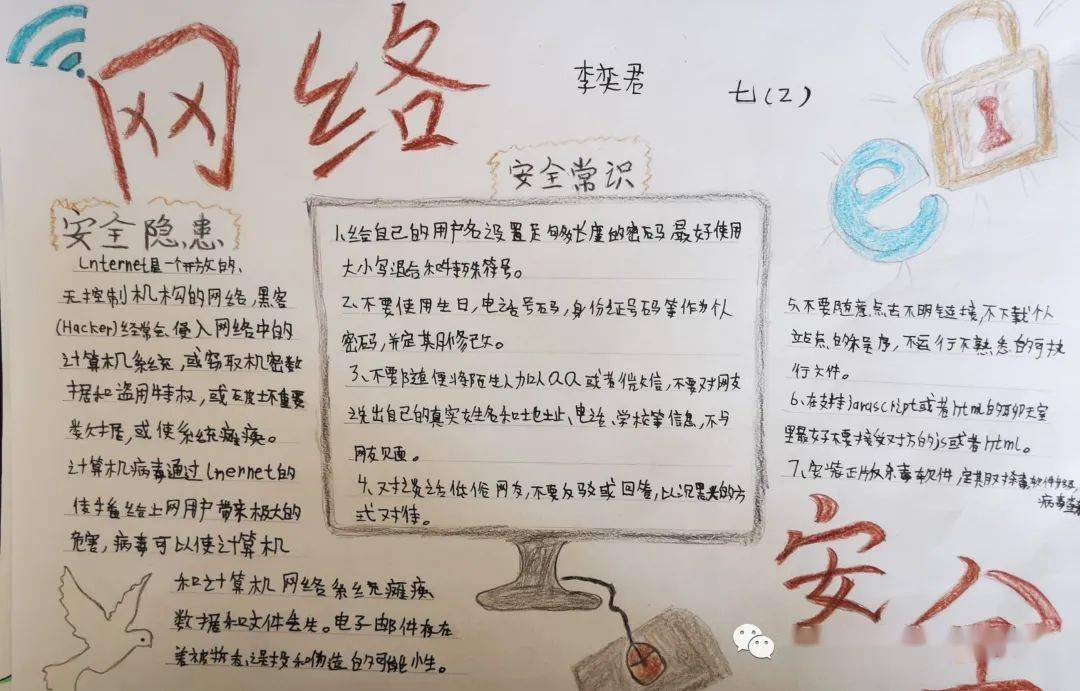 网络
李奕君
七(2)
安全隐患
Lnternet是一个开放的、
无控制机构的网络,黑客
(Hacker)经常会侵入网络中的
计算机系统,或窃取机密数
据和盗用特权,或破坏重要
数据,或使系统瘫痪。
计算机病毒通过Lnernet的
传播给上网用户带来极大的
危害,病毒可以使计算机
和计算机网络系统瘫痪
数据和文件丢失。电子邮件存在
着被拆看、误投和伪造的可能性。
安全常识
1、给自己的用户名设置足够长度的密码最好使用
大小写混合和特殊符号。
2、不要使用生日,电话号码,身份证号码等作为
密码,并定期修改。
3、不要随便将陌生人加QQ或者微信,不要对网友
说出自己的真实姓名和地址、电话、学校等信息,不与
网友见面。
4、对谈话低俗网友,不要反驳或回答,以沉默的方
式对待。
5、不要随意点击不明链接,不下载个人
站点的程序,不运行不熟悉的可执
行文件。
6、在支持javascript或者html的聊天室
里最好不要接受对方的js或者html。
7、安装正版杀毒软件,定期杀毒软件升级,
病毒查
安全